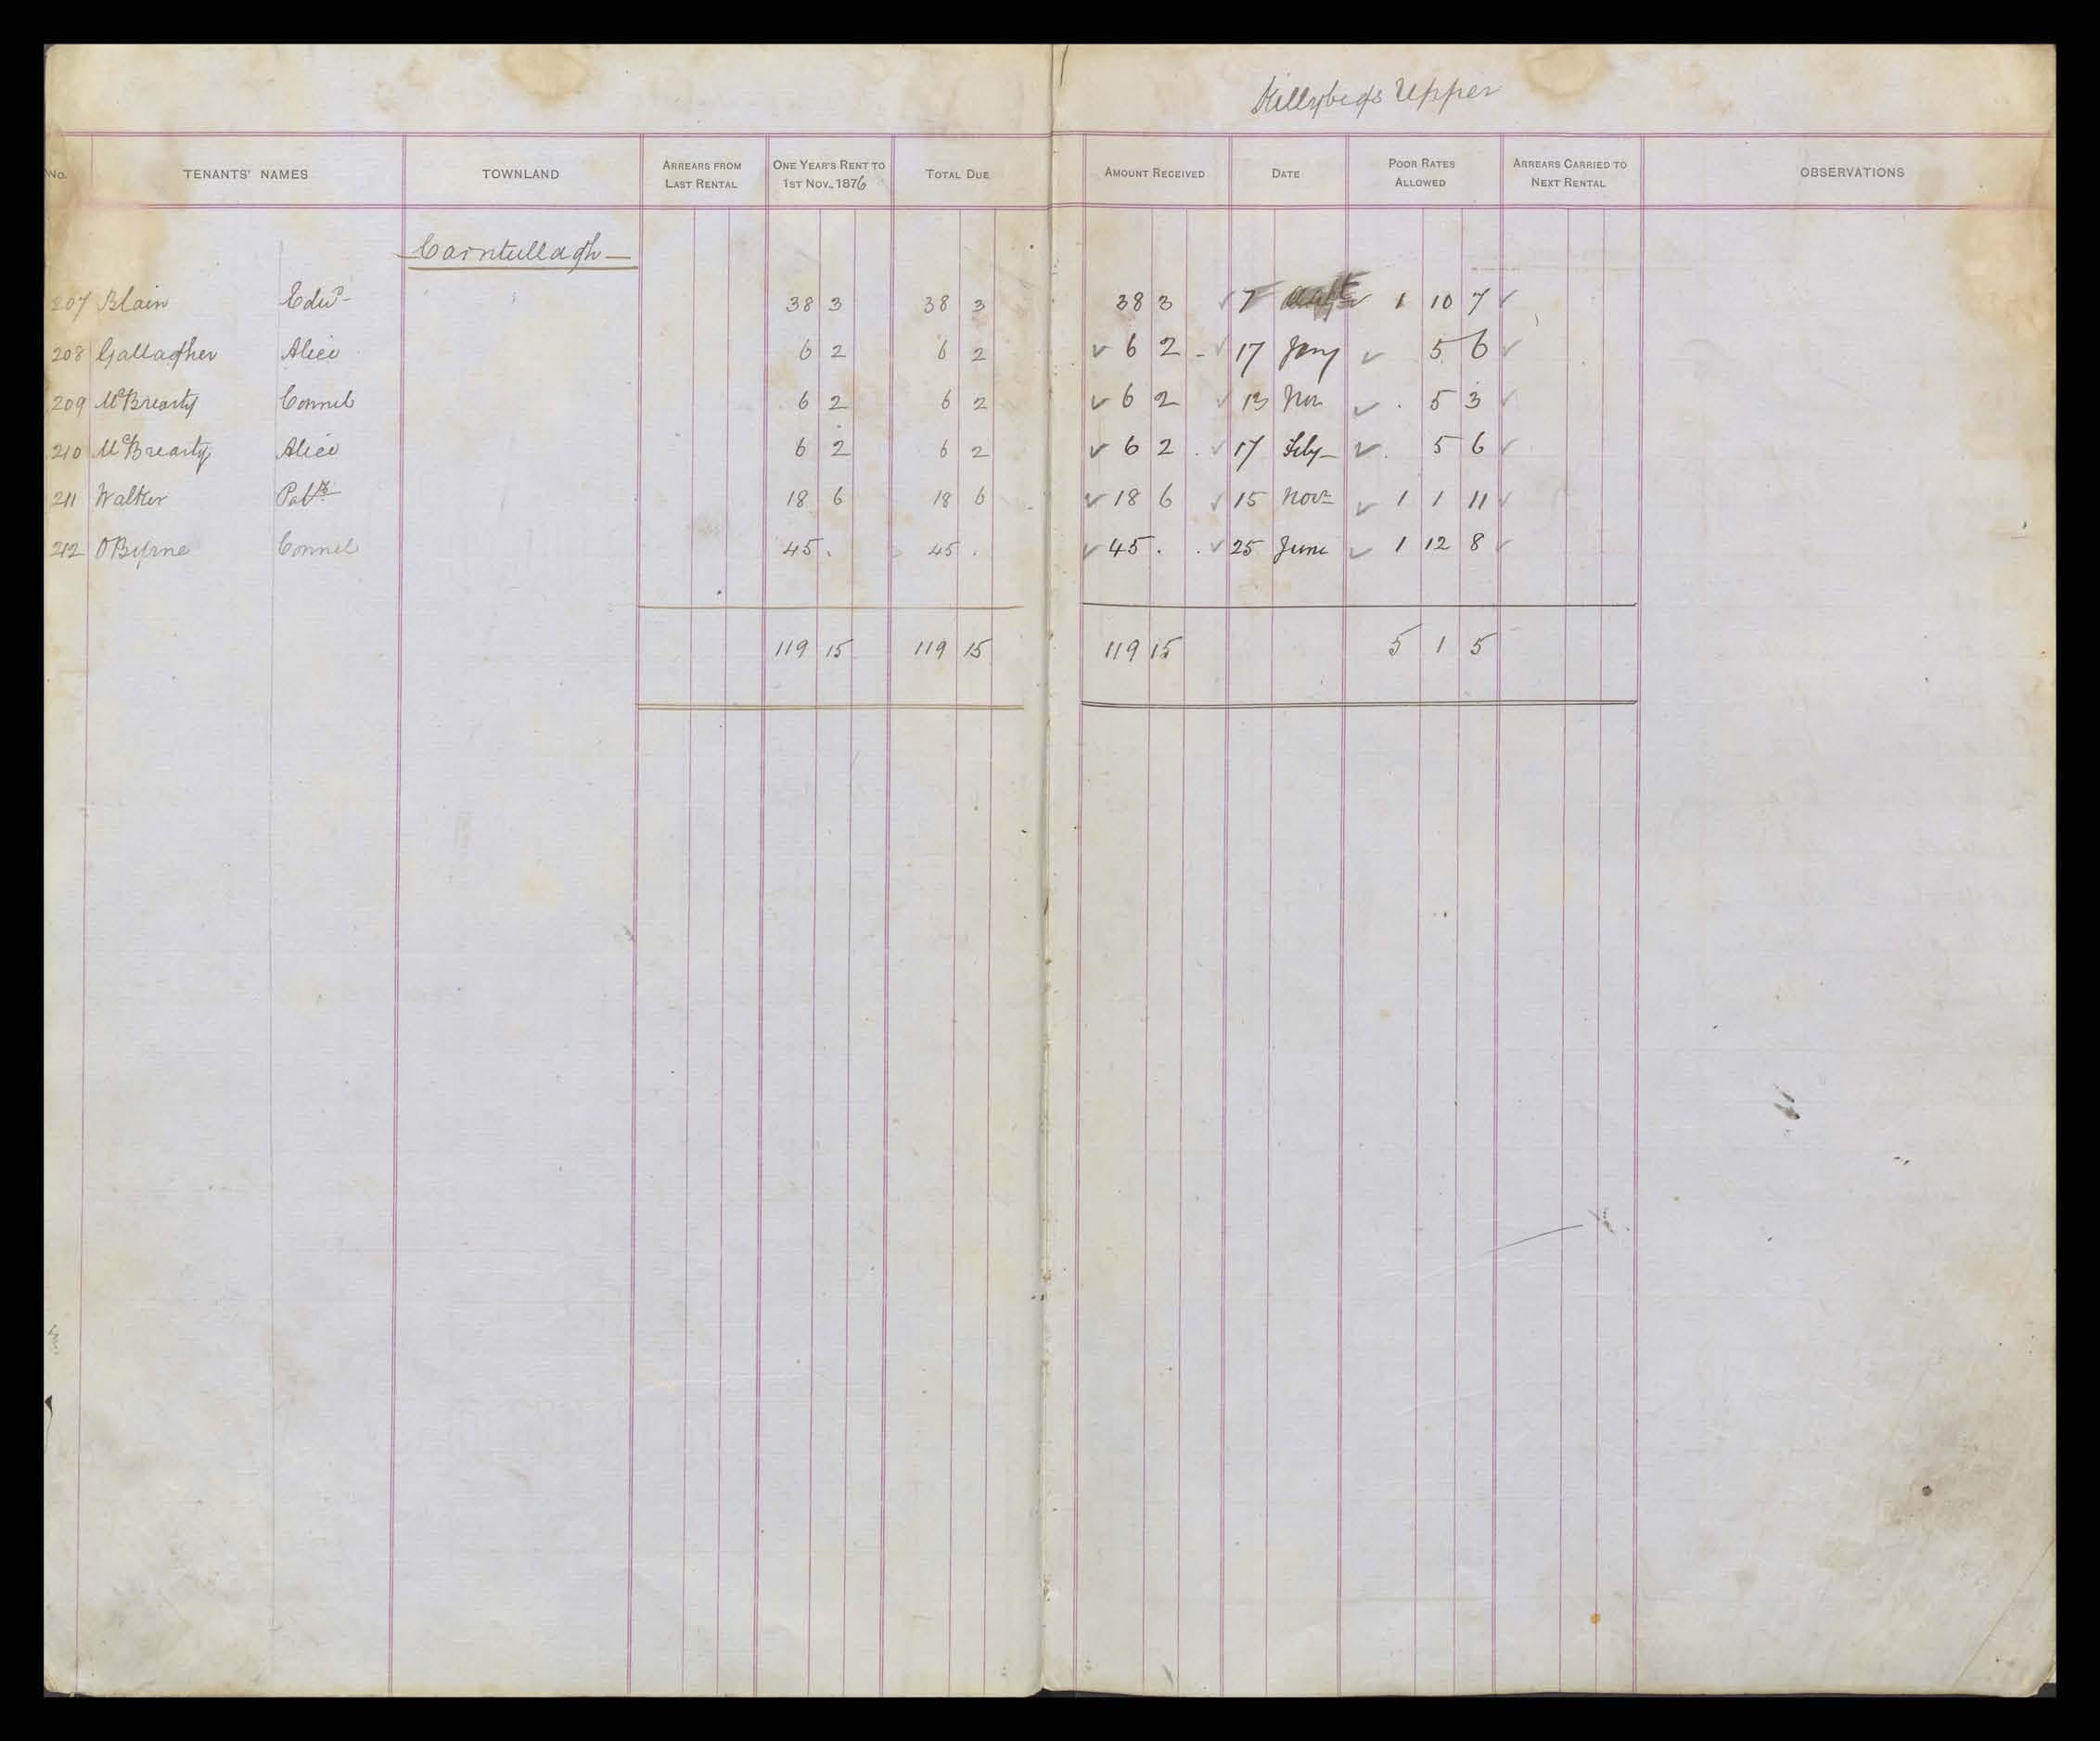 Killybegs Upper
No. TENANTS' NAMES TOWNLAND ARREARS FROM LAST RENTAL ONE YEAR'S RENT TO 1ST NOV., 1876 TOTAL DUE AMOUNT RECEIVED DATE POOR RATES ALLOWED ARREARS CARRIED TO NEXT RENTAL OBSERVATIONS
Corntullagh
207 Blain Edwd 38 3 38 3 38 3 ✓ 7 ✓ 1 10 7 ✓
208 Gallagher Alice 6 2 6 2 ✓ 6 2 - ✓ 17 Jany ✓ 5 6 ✓
209 McBrearty Connel 6 2 6 2 ✓ 6 2 ✓ 13 Nov ✓ . 5 3 ✓
210 McBrearty Alice 6 2 6 2 ✓ 6 2 . ✓ 17 Feby ✓ . 5 6 ✓
211 Walker Patk 18 6 18 6 ✓ 18 6 ✓ 15 Novr ✓ 1 1 11 ✓
212 OByrne Connel 45 . 45 . ✓ 45 . . ✓ 25 June ✓ 1 12 8 ✓
119 15 119 15 119 15 5 1 5